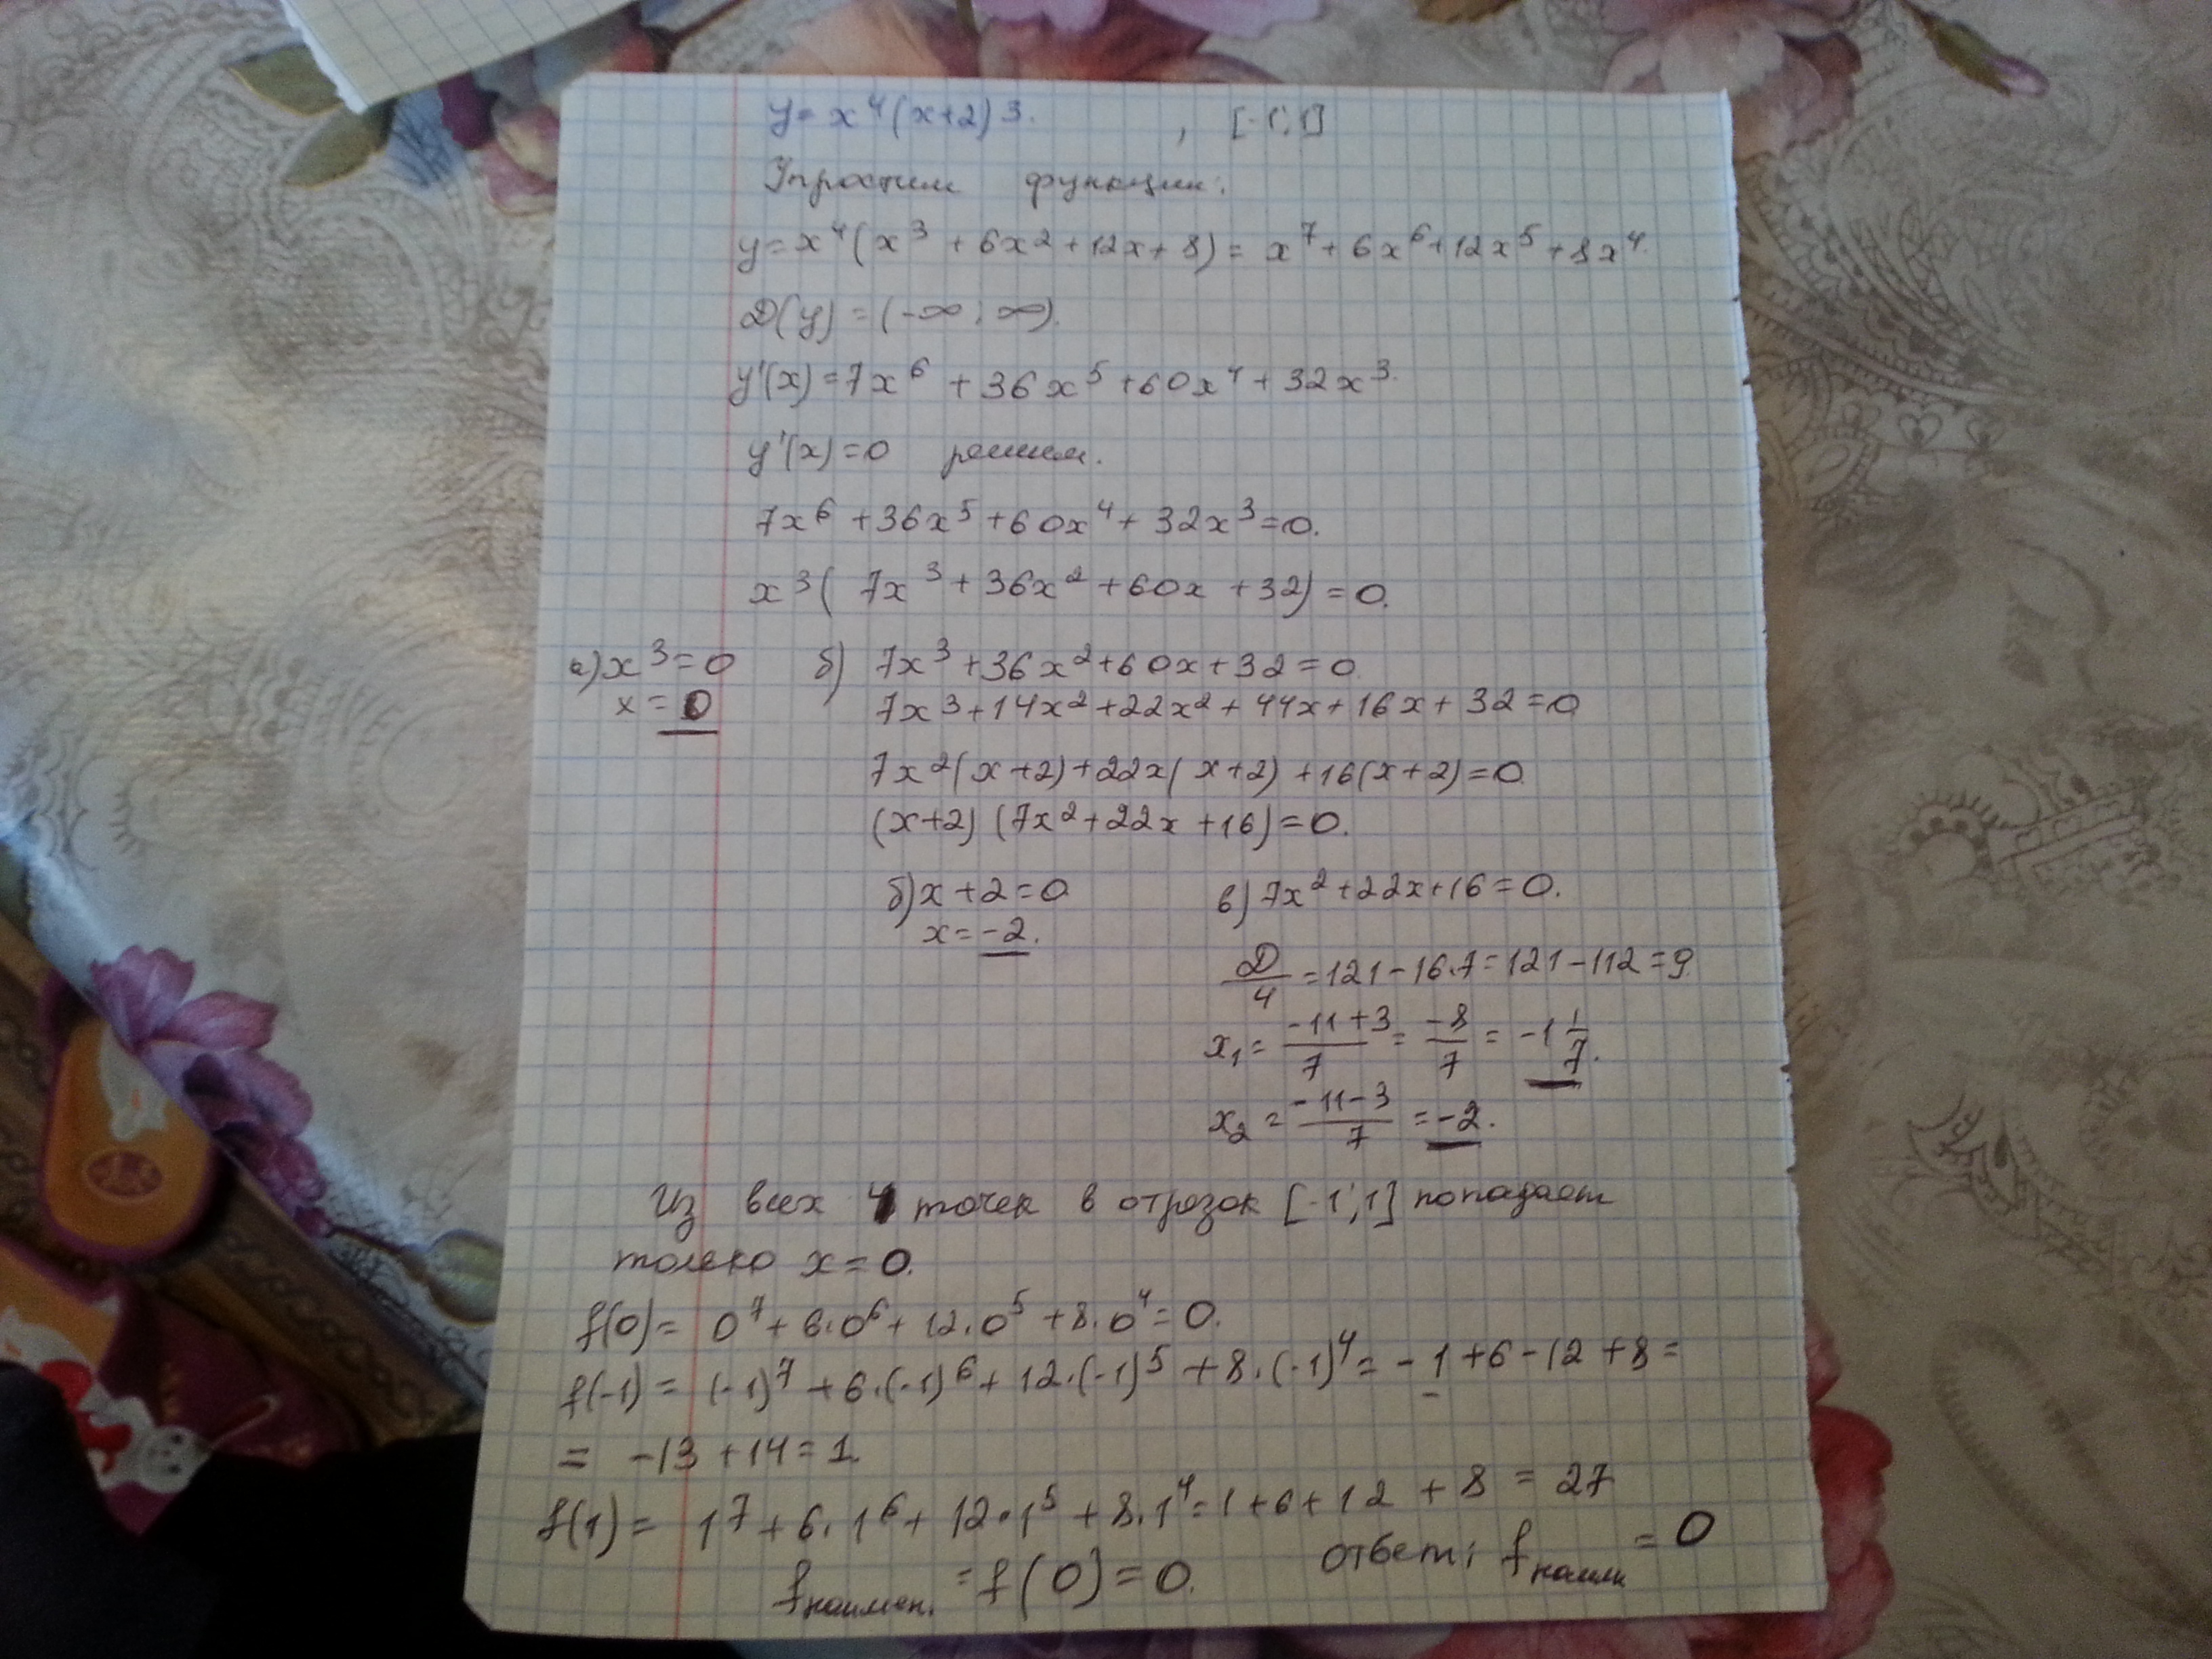 y = x⁴(x+2)³. , [-1; 1]
Упростим функцию.
y = x⁴(x³ + 6x² + 12x + 8) = x⁷ + 6x⁶ + 12x⁵ + 8x⁴.
D(y) = (-∞; ∞).
y'(x) = 7x⁶ + 36x⁵ + 60x⁴ + 32x³.
y'(x) = 0 решим.
7x⁶ + 36x⁵ + 60x⁴ + 32x³ = 0.
x³(7x³ + 36x² + 60x + 32) = 0.
а) x³ = 0 б) 7x³ + 36x² + 60x + 32 = 0.
x = 0 7x³ + 14x² + 22x² + 44x + 16x + 32 = 0
7x²(x+2) + 22x(x+2) + 16(x+2) = 0.
(x+2)(7x² + 22x + 16) = 0.
б) x + 2 = 0 в) 7x² + 22x + 16 = 0.
x = -2.
D/4 = 121 - 16·7 = 121 - 112 = 9
x₁ = (-11+3)/7 = -8/7 = -1 1/7.
x₂ = (-11-3)/7 = -2.
Из всех 4 точек в отрезок [-1; 1] попадает
только x = 0.
f(0) = 0⁷ + 6·0⁶ + 12·0⁵ + 8·0⁴ = 0.
f(-1) = (-1)⁷ + 6·(-1)⁶ + 12·(-1)⁵ + 8·(-1)⁴ = -1 + 6 - 12 + 8 =
= -13 + 14 = 1.
f(1) = 1⁷ + 6·1⁶ + 12·1⁵ + 8·1⁴ = 1 + 6 + 12 + 8 = 27
f наимен. = f(0) = 0. ответ: f наим = 0